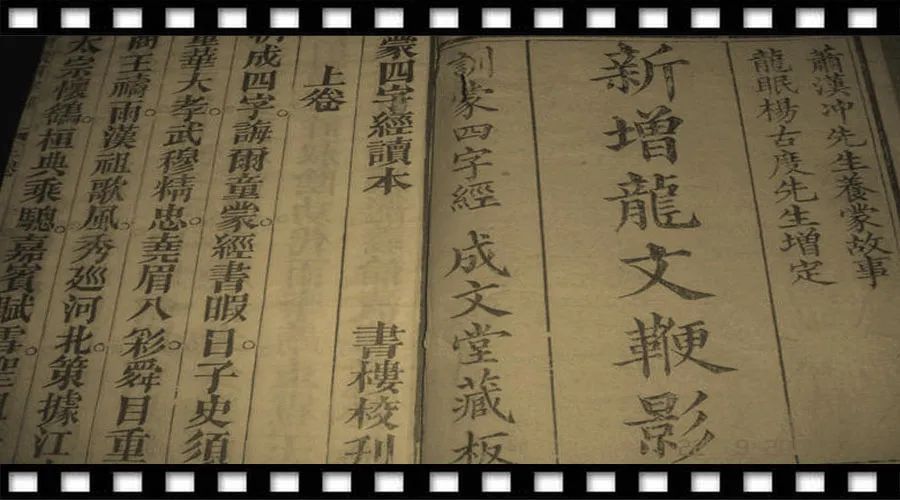 蕭漢冲先生養蒙故事
龍眠楊古度先生增定
新增龍文鞭影
訓蒙四字經 成文堂藏板
蒙四字經讀本 書樓校刊
上卷
初成四字。誨爾童蒙。經書暇日。子史須
重華大孝。武穆精忠。堯眉八彩。舜目重
商王禱雨。漢祖歌風。秀巡河北。策據江
太宗懷鷂。桓典乘驄。嘉賓賦雪。聖